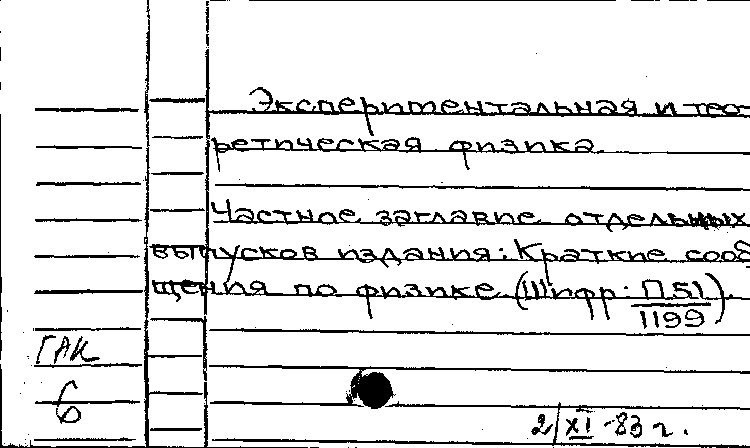 Экспериментальная и тео-
ретическая физика.
Частное заглавие отдельных
выпусков издания: Краткие сооб
щения по физике. (Шифр: П51/1199).
ГАК
6
2/XI-83 г.